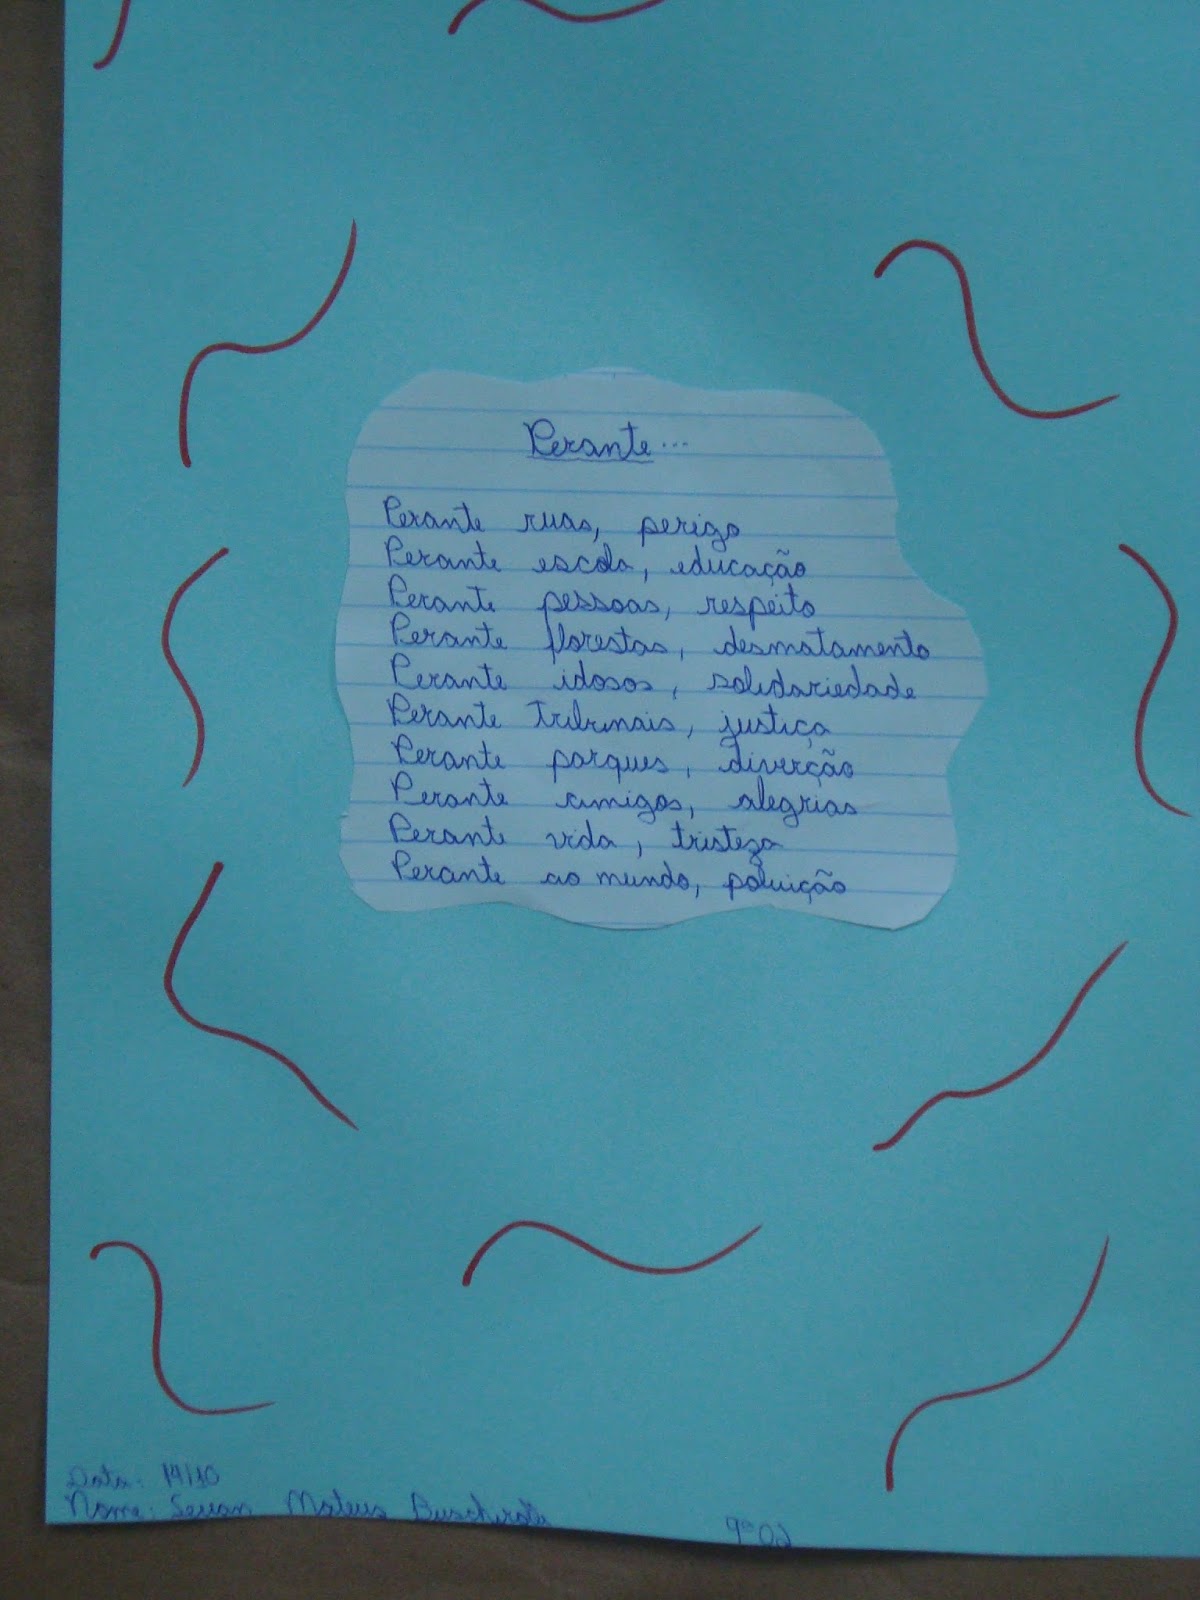 Perante...
Perante ruas, perigo
Perante escola, educação
Perante pessoas, respeito
Perante florestas, desmatamento
Perante idosos, solidariedade
Perante tribunais, justiça
Perante parques, diverção
Perante amigos, alegrias
Perante vida, tristeza
Perante ao mundo, poluição
Data: 14/10
Nome: Mateus